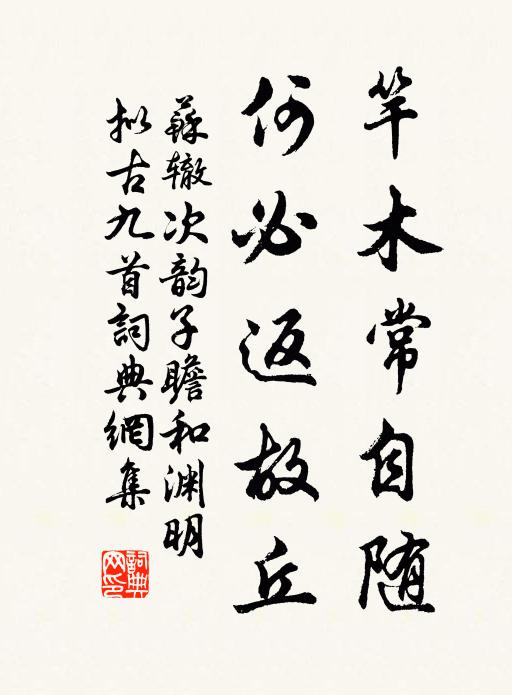 竿木常自随
何必返故丘
蘇辙次韵子瞻和渊明
拟古九首詞典網集
詞典
网印